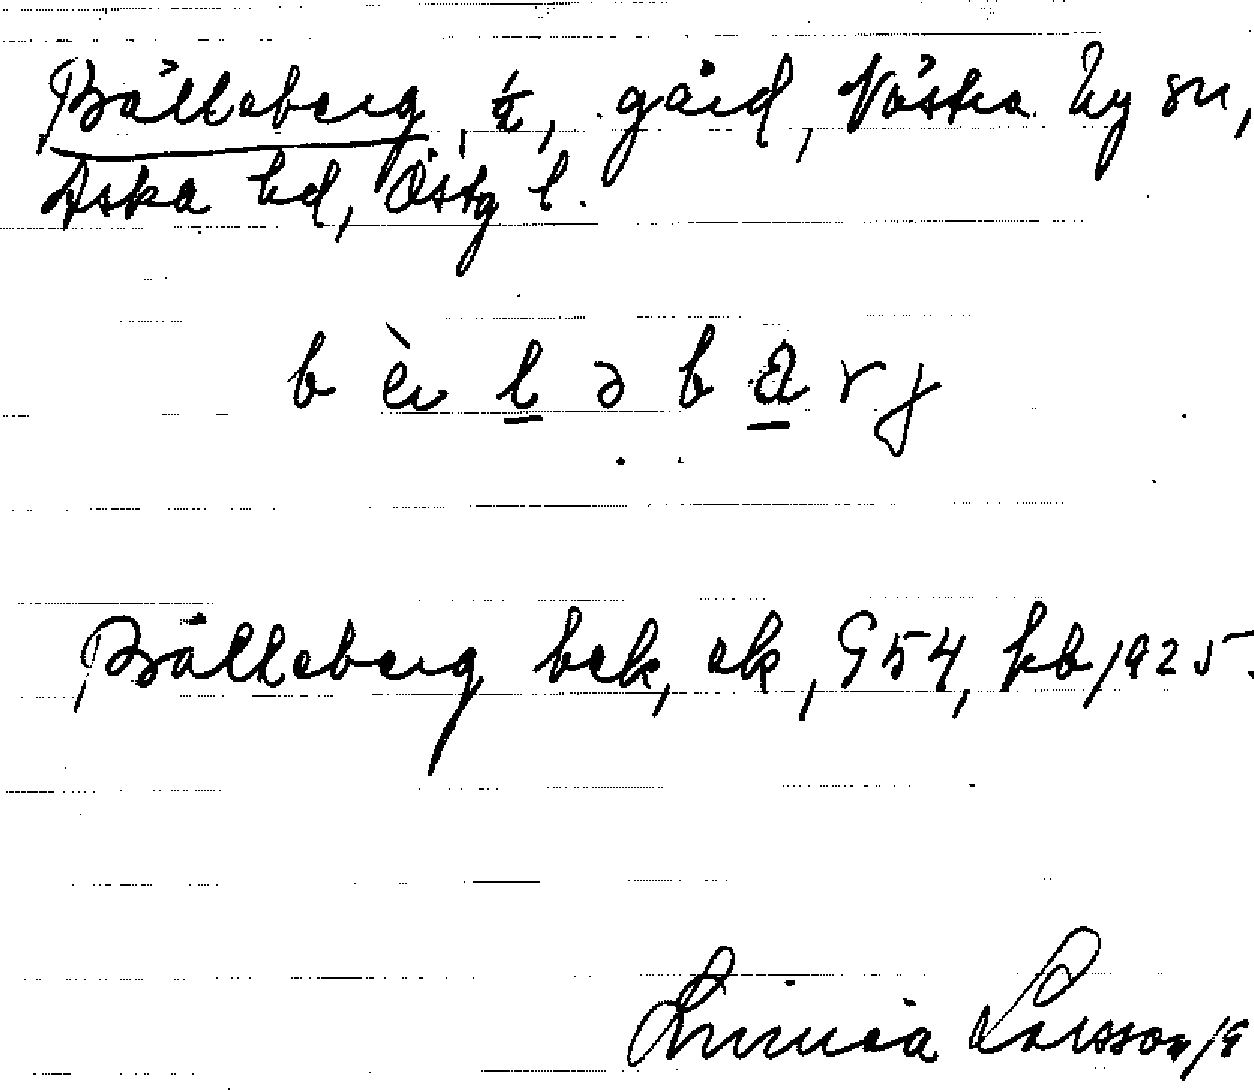 Bälleberg, ½, gård, Västra Ny sn,
Aska hd, Östg l.
b ὲ l ə b a r j
Bälleberg bek, ek, G54, kb 1925.
Linnéa Larsson